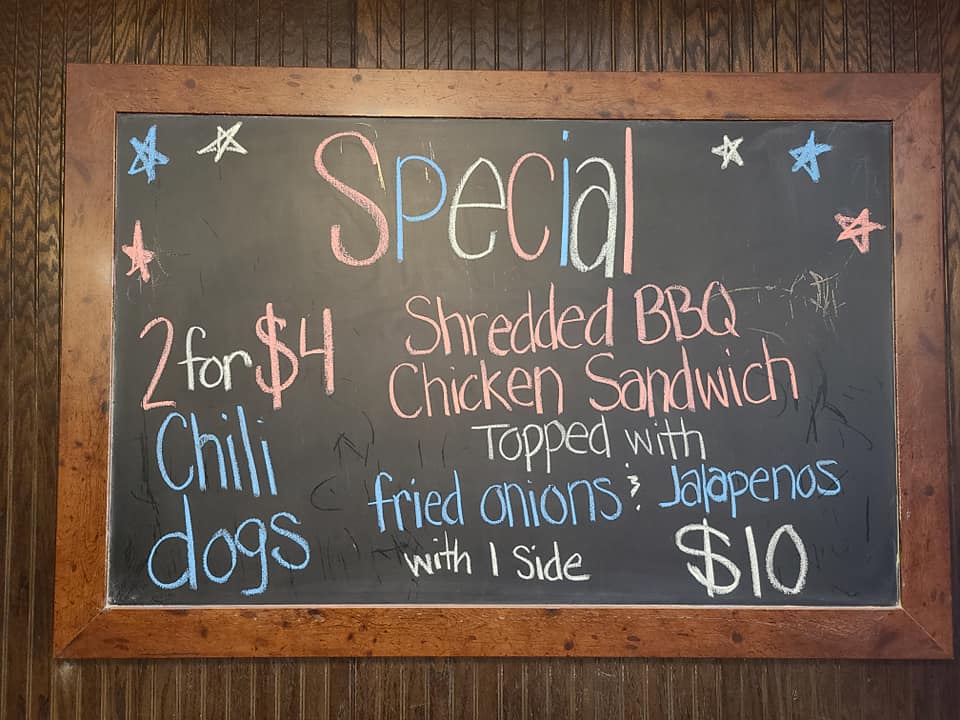 Special
2 for $4
Chili
dogs
Shredded BBQ
Chicken Sandwich
Topped with
fried onions & Jalapenos
with 1 side
$10